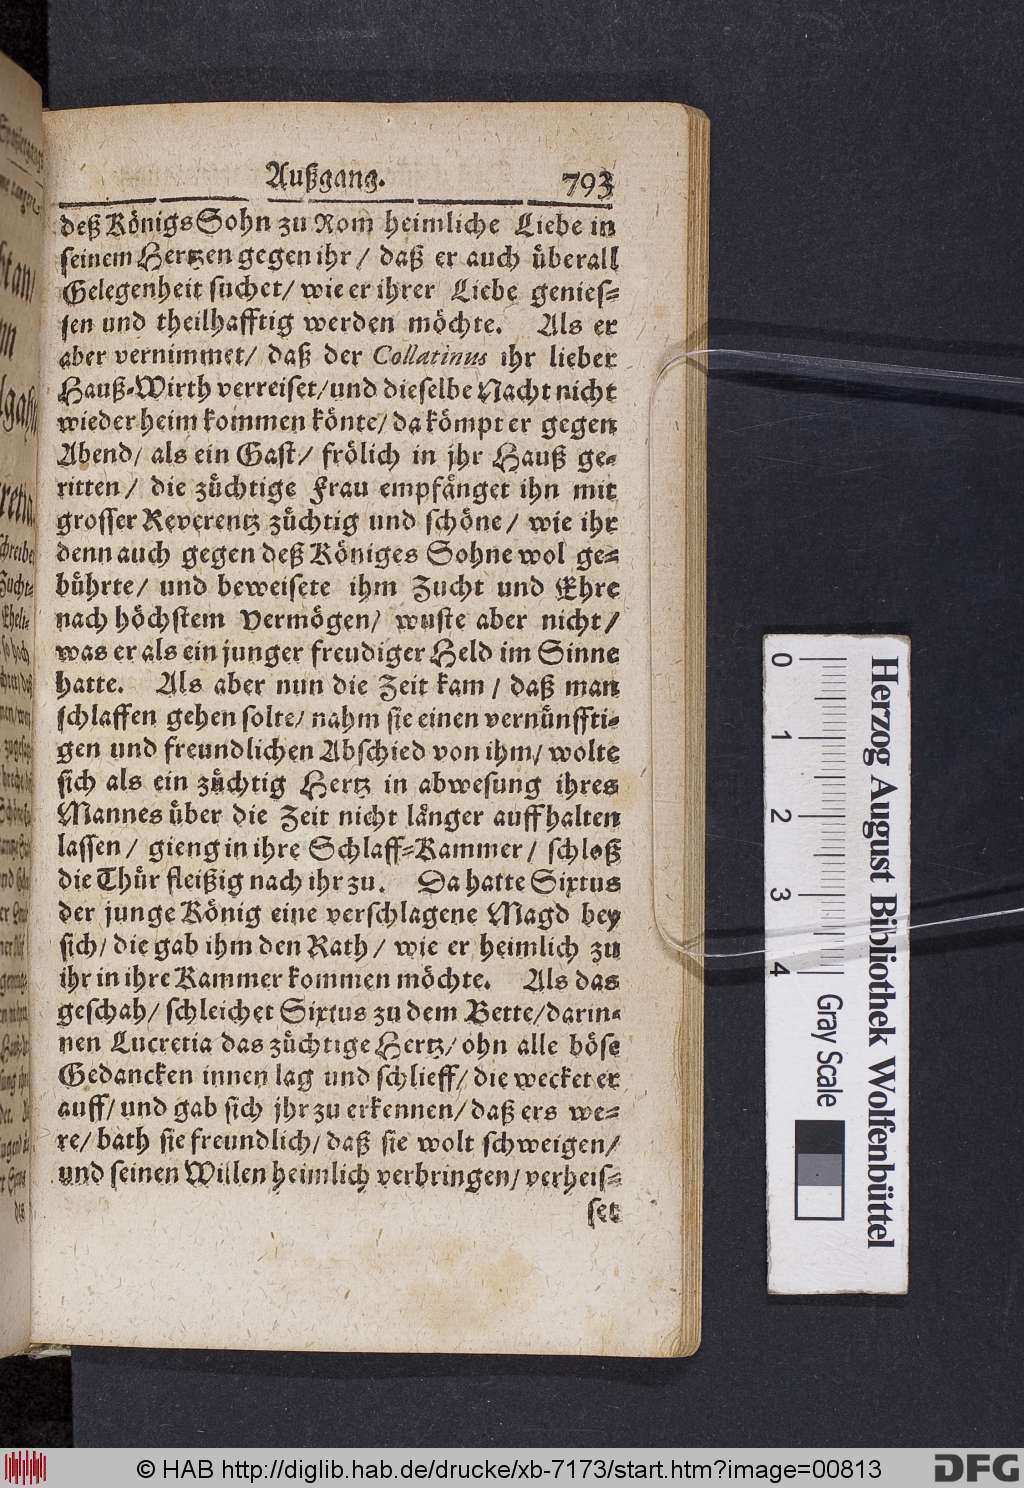 Außgang. 793
deß Königs Sohn zu Rom heimliche Liebe in
seinem Hertzen gegen ihr / daß er auch überall
Gelegenheit suchet / wie er ihrer Liebe genies=
sen und theilhafftig werden möchte. Als er
aber vernimmet / daß der Collatinus ihr lieber
Hauß=Wirth verreiset / und dieselbe Nacht nicht
wieder heim kommen könte / da kömpt er gegen
Abend / als ein Gast / frölich in jhr Hauß ge=
ritten / die züchtige Frau empfänget ihn mit
grosser Reverentz züchtig und schöne / wie ihr
denn auch gegen deß Königes Sohne wol ge=
bührte / und beweisete ihm Zucht und Ehre
nach höchstem Vermögen / wuste aber nicht /
was er als ein junger freudiger Held im Sinne
hatte. Als aber nun die Zeit kam / daß man
schlaffen gehen solte / nahm sie einen vernünffti=
gen und freundlichen Abschied von ihm / wolte
sich als ein züchtig Hertz in abwesung ihres
Mannes über die Zeit nicht länger auffhalten
lassen / gieng in ihre Schlaff=Kammer / schloß
die Thür fleißig nach ihr zu. Da hatte Sixtus
der junge König eine verschlagene Magd bey
sich / die gab ihm den Rath / wie er heimlich zu
ihr in ihre Kammer kommen möchte. Als das
geschah / schleichet Sixtus zu dem Bette / darin=
nen Lucretia das züchtige Hertz / ohn alle böse
Gedancken innen lag und schlieff / die wecket er
auff / und gab sich jhr zu erkennen / daß ers we=
re / bath sie freundlich / daß sie wolt schweigen /
und seinen Willen heimlich verbringen / verheis=
set
0 1 2 3 4
Herzog August Bibliothek Wolfenbüttel
Gray Scale
© HAB http://diglib.hab.de/drucke/xb-7173/start.htm?image=00813
DFG